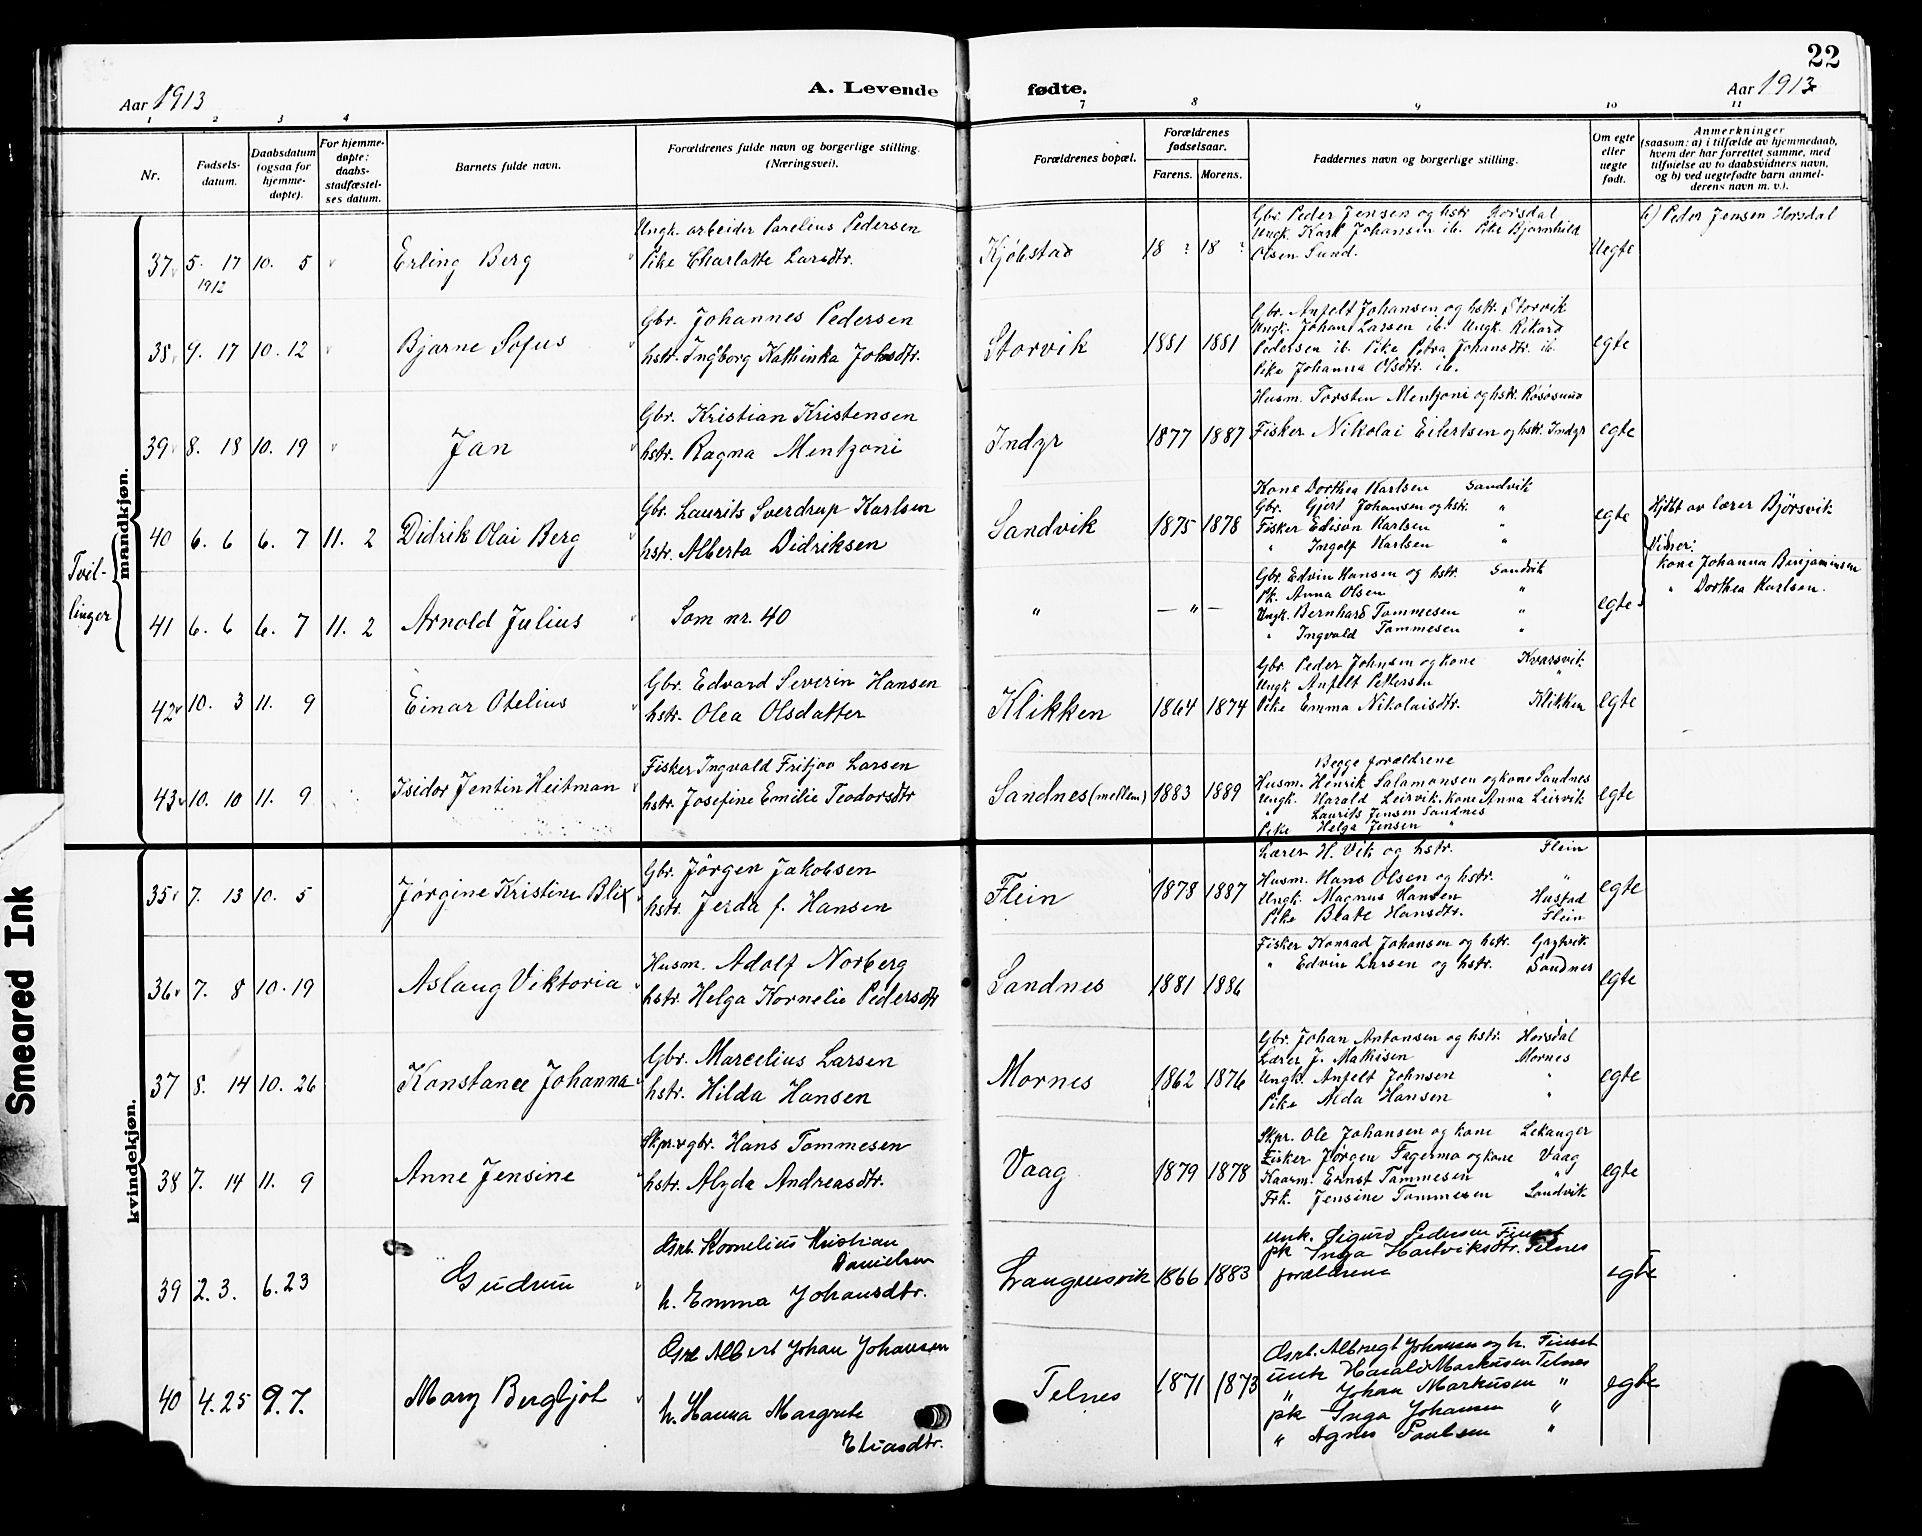 22
Aar 1913
A. Levende
fødte.
Aar 1913
1 2 3 4
7 8 9 10 11
Nr.
Fødsels-
datum.
Daabsdatum
(ogsaa for
hjemme-
døpte).
For hjemme-
døpte:
daabs-
stadfæstel-
ses datum.
Barnets fulde navn.
Forældrenes fulde navn og borgerlige stilling.
(Næringsvei).
Forældrenes bopæl.
Forældrenes
fødselsaar.
Farens. Morens.
Faddernes navn og borgerlige stilling.
Om egte
eller
uegte
født.
Anmerkninger
(saasom: a) i tilfælde av hjemmedaab,
hvem der har forrettet samme, med
tilføielse av to daabsvidners navn,
og b) ved uegtefødte barn anmel-
derens navn m. v.).
mandkjøn.
37 5. 17 10. 5 Erling Berg
1912
Ungk. arbeider Parelius Pedersen
Pike Charlotte Larsdtr.
Kjøbstad 18 ? 18 ?
Gbr. Peder Jensen og hstr. Horsdal
Ungk. Karl Johansen ib. Pike Bjørnhild
Olsen Sund.
Uegte
b) Peder Jensen Horsdal
38 4. 17 10. 12 Bjarne Sofus
Gbr. Johannes Pedersen
hstr. Ingborg Kathinka Johsdtr.
Storvik 1881 1881
Gbr. Anfelt Johansen og hstr. Storvik
Ungk. Johan Larsen ib. Ungk. Rikard
Pedersen ib. Pike Petra Johansdtr. ib.
Pike Johanna Olsdtr. ib.
egte
39 8. 18 10. 19 Jan
Gbr. Kristian Kristensen
hstr. Ragna Mentzoni
Indyr 1877 1887
Husm. Torsten Mentzoni og hstr. Røsøsund
Fisker Nikolai Eilertsen og hstr. Indyr
egte
Tvil-
linger
40 6. 6 6. 7 11. 2 Didrik Olai Berg
Gbr. Laurits Sverdrup Karlsen
hstr. Alberta Didriksen
Sandvik 1875 1878
Kone Dorthea Karlsen Sandvik
Gbr. Gjert Johansen og hstr. "
Fisker Edison Karlsen "
" Ingolf Karlsen "
egte
Hjdbt av lærer Bjørsvik
Vidner:
Kone Johanna Benjaminsen
" Dorthea Karlsen.
41 6. 6 6. 7 11. 2 Arnold Julius
Som nr. 40
" — " —
Gbr. Edvin Hansen og hstr. Sandvik
Pk. Anna Olsen "
Ungk. Bernhard Tommesen "
" Ingvald Tommesen "
egte
42 10. 3 11. 9 Einar Otelius
Gbr. Edvard Severin Hansen
hstr. Olea Olsdatter
Klikken 1864 1874
Gbr. Peder Johnsen og kone Kvarsvik
Ungk Anfelt Pettersen "
Pike Emma Nikolaisdtr. Klikken
egte
43 10. 10 11. 9 Isidor Jentin Heitman
Fisker Ingvald Fritjov Larsen
hstr. Josefine Emilie Teodorsdtr
Sandnes (mellem) 1883 1889
Begge forældrene
Husm. Henrik Salamonsen og kone Sandnes
Ungk. Harald Leirvik. Kone Anna Leirvik
" Laurits Jensen Sandnes
Pike Helga Jensen "
egte
kvindekjøn.
35 7. 13 10. 5 Jørgine Kristine Blix
Gbr. Jørgen Jakobsen
hstr. Jerda f. Hansen
Flein 1878 1887
Lærer H. Vik og hstr. Flein
Husm. Hans Olsen og hstr. "
Ungk. Magnus Hansen Hustad
Pike Beate Hansdtr. Flein
egte
36 7. 8 10. 19 Aslaug Viktoria
Husm. Adolf Norberg
hstr. Helga Kornelie Pedersdtr
Sandnes 1881 1886
Fisker Konrad Johansen og hstr. Grytvik
" Edvin Larsen og hstr. Sandnes
egte
37 8. 14 10. 26 Konstance Johanna
Gbr. Marcelius Larsen
hstr. Hilda Hansen
Mornes 1862 1876
Gbr. Johan Antonsen og hstr. Horsdal
Lærer J. Mathisen Mornes
Ungk. Anfelt Johnsen "
Pike Alda Hansen "
egte
38 7. 14 11. 9 Anne Jensine
Skpr. & gbr. Hans Tommesen
hstr. Alyda Andreasdtr.
Vaag 1879 1878
Skpr. Ole Johansen og kone Lekanger
Fisker Jørgen Fagermo og kone Vaag
Kaarm. Ernst Tommesen "
Frk. Jensine Tommesen Sandvik
egte
39 2. 3. 6. 23 Gudrun
Gsrb. Kornelius Kristian
Danielsen
h. Emma Johansdtr.
Langnesvik 1866 1883
unk. Sigurd Pedersen Finset
pk Inga Hartviksdtr. Telnes
forældrene
egte
40 4. 25 9. 7. Mary Bergljot
Gsrb Albert Johan Johansen
h. Hanna Margrete
Eliasdtr.
Telnes 1871 1873
Gsrb. Albregt Johansen og h. Finset
unk Harald Markusen Telnes
" Johan Markusen "
pk Inga Johansen "
" Agnes Paulsen "
egte
Smeared Ink